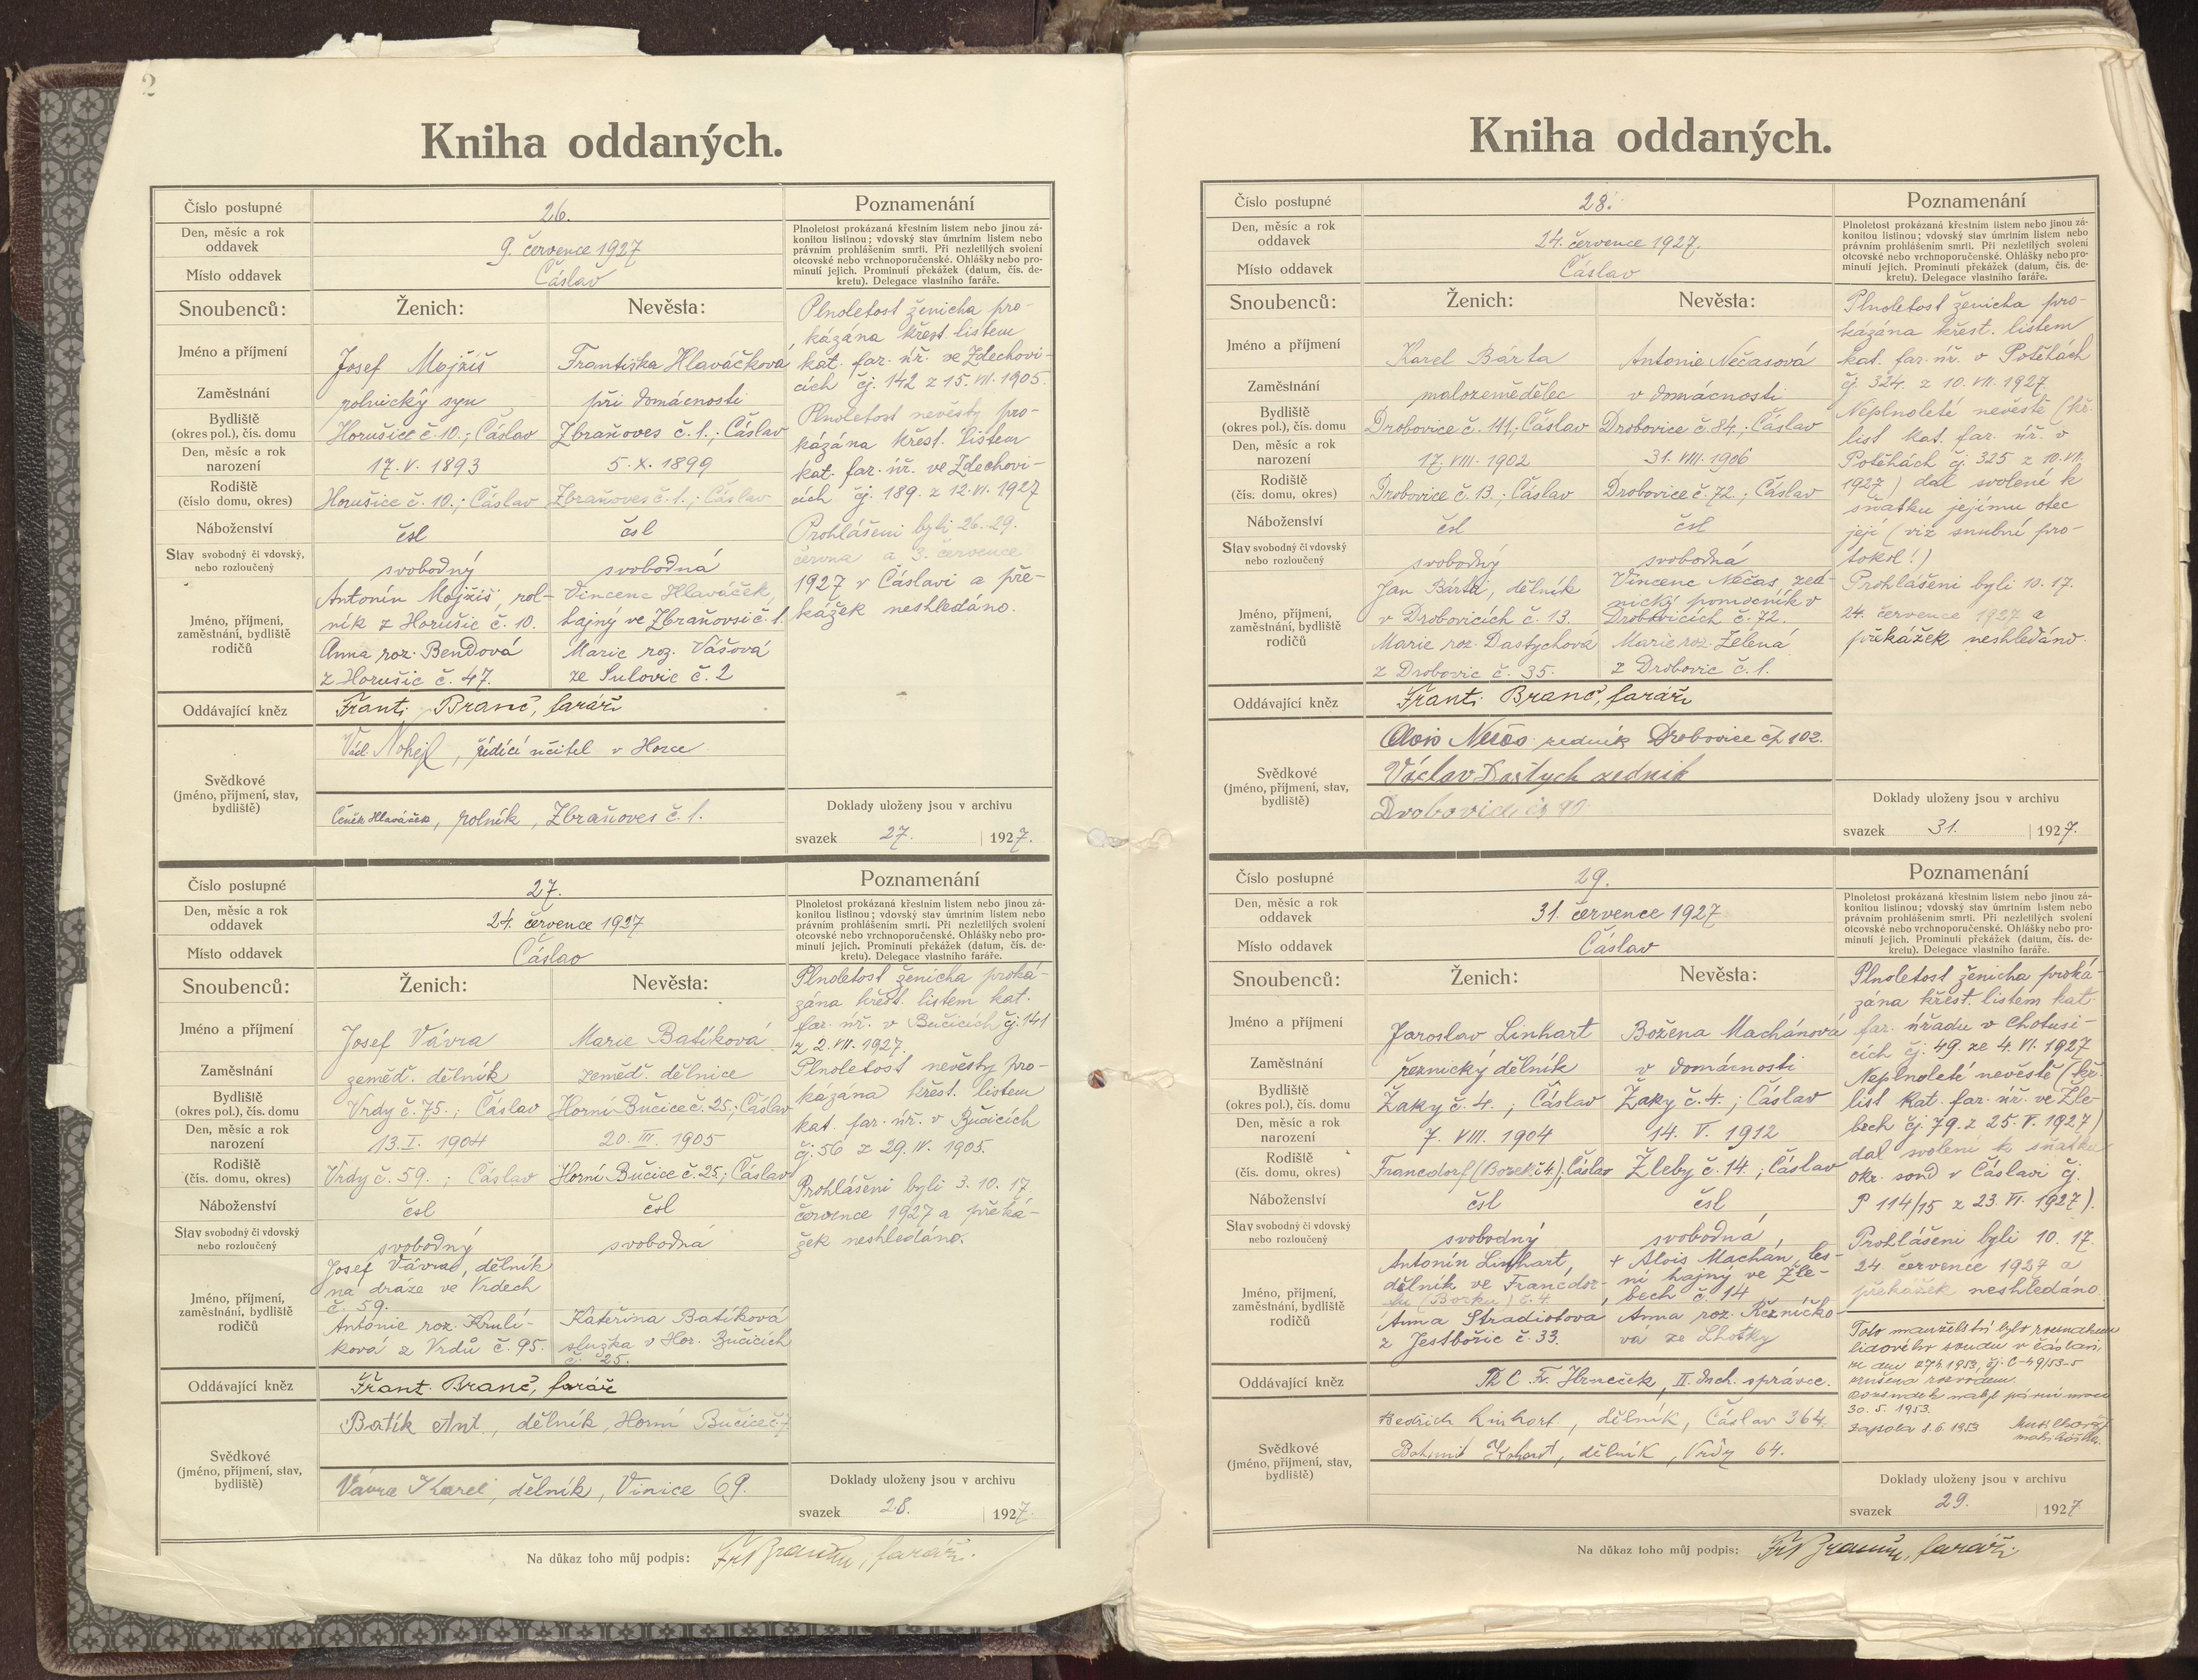 2
Kniha oddaných.
Číslo postupné 26.
Den, měsíc a rok oddavek 9. července 1927
Místo oddavek Čáslav
Poznamenání
Plnoletost prokázaná křestním listem nebo jinou zá-
konitou listinou; vdovský stav úmrtním listem nebo
právním prohlášením smrti. Při nezletilých svolení
otcovské nebo vrchnoporučenské. Ohlášky nebo pro-
minutí jejich. Prominutí překážek (datum, čís. de-
kretu). Delegace vlastního faráře.
Snoubenců: Ženich: Nevěsta:
Jméno a příjmení Josef Mojžíš Františka Hlaváčkova
Zaměstnání rolnický syn při domácnosti
Bydliště (okres pol.), čís. domu Horušice č. 10.; Čáslav Zbraňoves č. 1.; Čáslav
Den, měsíc a rok narození 17. V. 1893 5. X. 1899
Rodiště (číslo domu, okres) Horušice č. 10.; Čáslav Zbraňoves č. 1.; Čáslav
Náboženství čsl čsl
Stav svobodný či vdovský, nebo rozloučený svobodný svobodná
Jméno, příjmení, zaměstnání, bydliště rodičů
Antonín Mojžíš, rol-
ník z Horušic č. 10.
Anna roz. Bendová
z Horušic č. 47.
Vincenc Hlaváček,
hajný ve Zbraňovsi č. 1.
Marie roz. Vášová
ze Sulovic č. 2
Plnoletost ženicha pro-
kázána křest. listem
kat. far. úř. ve Zdechovi-
cích čj. 142 z 15. VII. 1905.
Plnoletost nevěsty pro-
kázána křest. listem
kat. far. úř. ve Zdechovi-
cích čj. 189. z 12. VI. 1927
Prohlášeni byli 26. 29.
června a 3. července
1927 v Čáslavi a pře-
kážek neshledáno.
Oddávající kněz Frant. Branč, farář
Svědkové (jméno, příjmení, stav, bydliště)
Nohejl, řídící učitel v Horce
Čeněk Hlaváček, rolník, Zbraňoves č. 1.
Doklady uloženy jsou v archivu
svazek 27. 1927.
Číslo postupné 27.
Den, měsíc a rok oddavek 24. července 1927
Místo oddavek Čáslav
Poznamenání
Plnoletost prokázaná křestním listem nebo jinou zá-
konitou listinou; vdovský stav úmrtním listem nebo
právním prohlášením smrti. Při nezletilých svolení
otcovské nebo vrchnoporučenské. Ohlášky nebo pro-
minutí jejich. Prominutí překážek (datum, čís. de-
kretu). Delegace vlastního faráře.
Snoubenců: Ženich: Nevěsta:
Jméno a příjmení Josef Vávra Marie Batíková
Zaměstnání zeměď. dělník zeměď. dělnice
Bydliště (okres pol.), čís. domu Vrdy č. 75.; Čáslav Horní Bučice č. 25.; Čáslav
Den, měsíc a rok narození 13. I. 1904 20. III. 1905
Rodiště (čís. domu, okres) Vrdy č. 59.; Čáslav Horní Bučice č. 25.; Čáslav
Náboženství čsl čsl
Stav svobodný či vdovský nebo rozloučený svobodný svobodná
Jméno, příjmení, zaměstnání, bydliště rodičů
Josef Vávra, dělník
na dráze ve Vrdech
č. 59.
Antonie roz. Krulí-
ková z Vrdů č. 95.
Kateřina Batíková
služka v Hor. Bučicích
č. 25.
Plnoletost ženicha proká-
zána křest. listem kat.
far. úř. v Bučicích čj. 141
z 2. VII. 1927.
Plnoletost nevěsty pro-
kázána křest. listem
kat. far. úř. v Bučicích
čj. 56 z 29. IV. 1905.
Prohlášeni byli 3. 10. 17.
července 1927 a překá-
žek neshledáno.
Oddávající kněz Frant. Branč, farář
Svědkové (jméno, příjmení, stav, bydliště)
Batík Ant., dělník, Horní Bučice č. 7
Vávra Karel, dělník, Vinice 69.
Doklady uloženy jsou v archivu
svazek 28. 1927.
Na důkaz toho můj podpis: farář.
Kniha oddaných.
Číslo postupné 28.
Den, měsíc a rok oddavek 24. července 1927.
Místo oddavek Čáslav
Poznamenání
Plnoletost prokázaná křestním listem nebo jinou zá-
konitou listinou; vdovský stav úmrtním listem nebo
právním prohlášením smrti. Při nezletilých svolení
otcovské nebo vrchnoporučenské. Ohlášky nebo pro-
minutí jejich. Prominutí překážek (datum, čís. de-
kretu). Delegace vlastního faráře.
Snoubenců: Ženich: Nevěsta:
Jméno a příjmení Karel Bárta Antonie Nečasová
Zaměstnání malozemědělec v domácnosti
Bydliště (okres pol.), čís. domu Drobovice č. 111.; Čáslav Drobovice č. 84.; Čáslav
Den, měsíc a rok narození 17. VIII. 1902 31. VIII. 1906
Rodiště (čís. domu, okres) Drobovice č. 13.; Čáslav Drobovice č. 72.; Čáslav
Náboženství čsl čsl
Stav svobodný či vdovský nebo rozloučený svobodný svobodná
Jméno, příjmení, zaměstnání, bydliště rodičů
Jan Bárta, dělník
v Drobovicích č. 13.
Marie roz. Dastychová
z Drobovic č. 35.
Vincenc Nečas, zed-
nický pomocník v
Drobovicích č. 72.
Marie roz. Zelená
z Drobovic č. 1.
Plnoletost ženicha pro-
kázána křest. listem
kat. far. úř. v Potěhách
čj. 324. z 10. VII. 1927.
Neplnoleté nevěstě (kř.
list kat. far. úř. v
Potěhách čj. 325 z 10. VII.
1927) dal svolené k
sňatku jejímu otec
její (viz snubní pro-
tokol!)
Prohlášeni byli 10. 17.
24. července 1927 a
překážek neshledáno.
Oddávající kněz Frant. Branč, farář
Svědkové (jméno, příjmení, stav, bydliště)
Alois Nečas zedník Drobovice čp 102.
Václav Daštych zedník
Drobovice čp 90
Doklady uloženy jsou v archivu
svazek 31. 1927.
Číslo postupné 29.
Den, měsíc a rok oddavek 31. července 1927
Místo oddavek Čáslav
Poznamenání
Plnoletost prokázaná křestním listem nebo jinou zá-
konitou listinou; vdovský stav úmrtním listem nebo
právním prohlášením smrti. Při nezletilých svolení
otcovské nebo vrchnoporučenské. Ohlášky nebo pro-
minutí jejich. Prominutí překážek (datum, čís. de-
kretu). Delegace vlastního faráře.
Snoubenců: Ženich: Nevěsta:
Jméno a příjmení Jaroslav Linhart Božena Machánová
Zaměstnání řeznický dělník v domácnosti
Bydliště (okres pol.), čís. domu Žaky č. 4.; Čáslav Žaky č. 4.; Čáslav
Den, měsíc a rok narození 7. VIII. 1904 14. V. 1912
Rodiště (čís. domu, okres) Francdorf (Borek č. 4.), Čáslav Žleby č. 14.; Čáslav
Náboženství čsl čsl
Stav svobodný či vdovský nebo rozloučený svobodný svobodná
Jméno, příjmení, zaměstnání, bydliště rodičů
Antonín Linhart,
dělník ve Francdor-
fu (Borku) č. 4.
Anna Stradiotova
z Jestbořic č. 33.
+ Alois Machán, les-
ní hajný ve Žle-
bech č. 14
Anna roz. Řezníčko-
vá ze Lhotky
Plnoletost ženicha proká-
zána křest. listem kat.
far. úřadu v Chotusi-
cích čj. 49. ze 4. VI. 1927
Neplnoleté nevěstě (kř.
list kat. far. úř. ve Žle-
bech čj. 79. z 25. V. 1927)
dal svolení k sňatku
okr. soud v Čáslavi čj.
P 114/15 z 23. VI. 1927).
Prohlášeni byli 10. 17.
24. července 1927 a
překážek neshledáno.
Toto manželství bylo rozsudkem
lidového soudu v Čáslavi
ze dne 27.4.1953, čj. C-49/53-5
zrušeno rozvodem.
Rozsudek nabyl právní moci
30. 5. 1953.
Zapsala 8. 6. 1953
Oddávající kněz Th C. Fr. Hrneček, II. duch. správce.
Svědkové (jméno, příjmení, stav, bydliště)
Bedřich Linhart, dělník, Čáslav 364.
Bohumil, dělník, Vrdy 64.
Doklady uloženy jsou v archivu
svazek 29. 1927
Na důkaz toho můj podpis: farář.